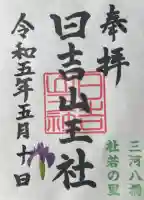 奉拝
日吉山王社
令和五年五月十日
三河八橋
社若の里